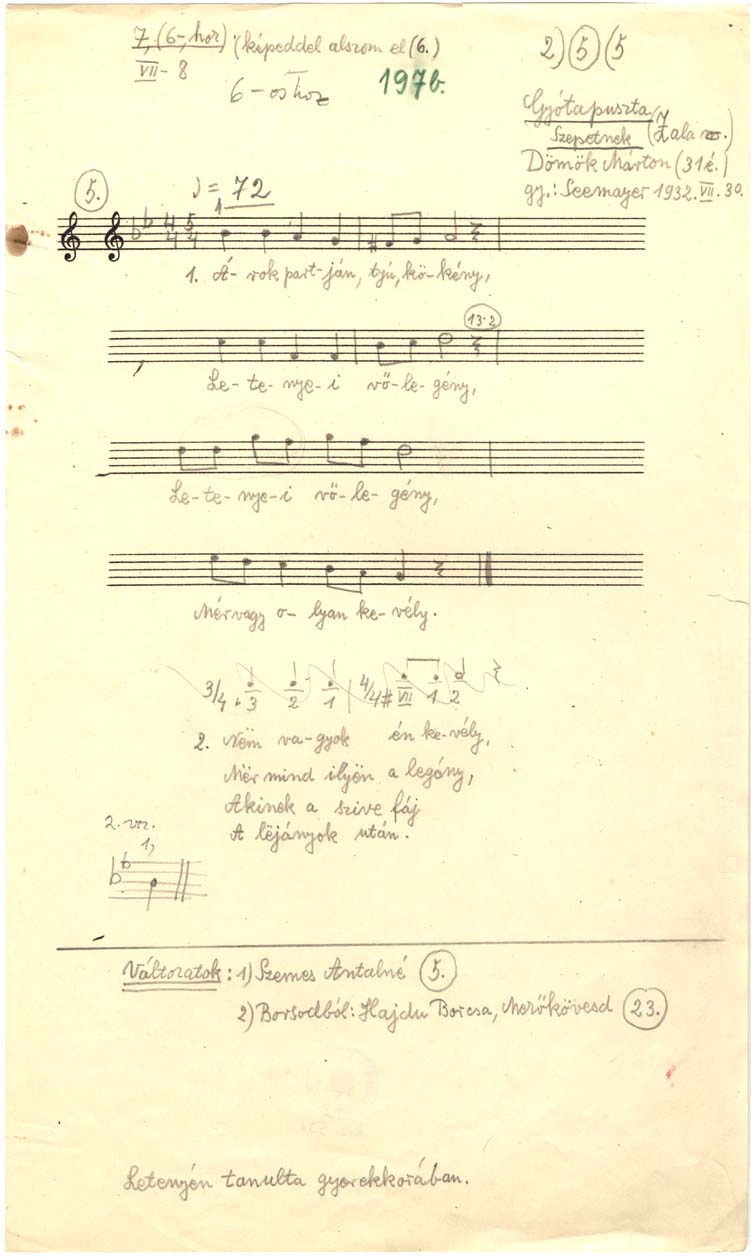 7, (6-, hoz) (képeddel alszom el (6.)
VII - 8
6-os hoz
197b.
2) 5 (5
Gyótapuszta
Szepetnek (Zala m.)
Dömök Márton (31 é.)
gy.: Seemayer 1932. VII. 30.
5.
♩ = 72
4/4 5/4
1
1. Á- rok part-ján, tyú, kö-kény,
13·2
Le- te- nye- i vő- le- gény,
Le- te- nye- i vő- le- gény,
Mér vagy o- lyan ke- vély.
3/4 b3 2 1 4/4 # VII 1 2
2. Nëm va-gyok én ke-vély,
Mër mind ilyën a legény,
Akinek a szive fáj
A lëjányok után.
2. vsz.
1,
Változatok: 1) Szemes Antalné 5.
2) Borsodból: Hajdu Borcsa, Mezőkövesd 23.
Letenyén tanulta gyerekkorában.